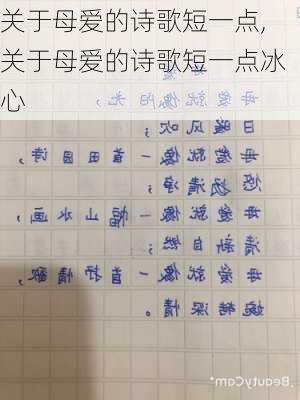 关于母爱的诗歌短一点,
关于母爱的诗歌短一点冰
心
母爱就像阳光，
日暖风吹；
母爱就像一首田园诗，
悠远清净；
母爱就像一幅山水画，
清新自然；
母爱就像一首抒情歌，
婉转深情。
BeautyCam